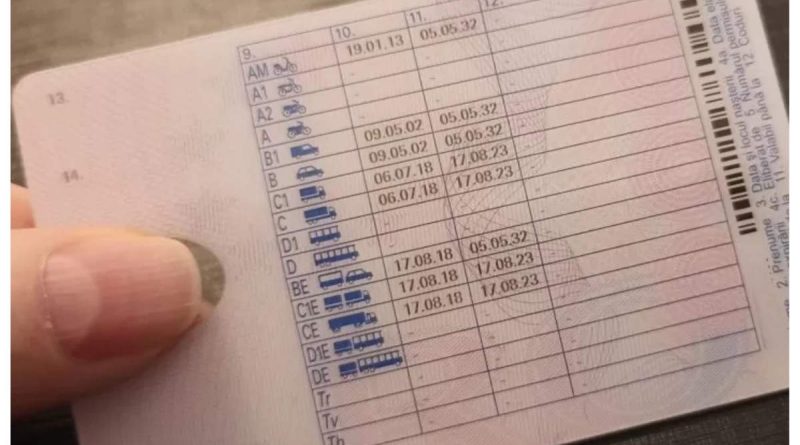 13.
14.
9. 10. 11. 12.
AM 19.01.13 05.05.32
A1 - -
A2 - -
A - -
B1 09.05.02 05.05.32
B 09.05.02 05.05.32
C1 06.07.18 17.08.23
C 06.07.18 17.08.23
D1 - -
D - -
BE 17.08.18 05.05.32
C1E 17.08.18 17.08.23
CE 17.08.18 17.08.23
D1E - -
DE - -
Tr - -
Tv - -
Tb
2. Prenume 3. Data și locul nașterii 4a. Data
4c. Eliberat de 5 Numărul
11. Valabil până la 12 Coduri